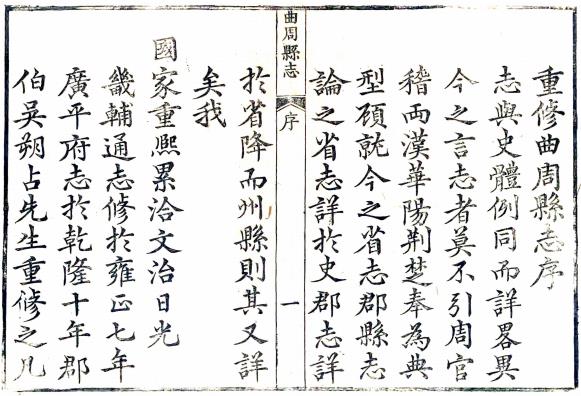 重修曲周縣志序
志與史體例同而詳畧異
今之言志者莫不引周官
稽兩漢華陽荆楚奉為典
型碩就今之省志郡縣志
論之省志詳於史郡志詳
曲周縣志
序
一
於省降而州縣則其又詳
矣我
國家重熈累洽文治日光
畿輔通志修於雍正七年
廣平府志於乾隆十年郡
伯吳朔占先生重修之凡